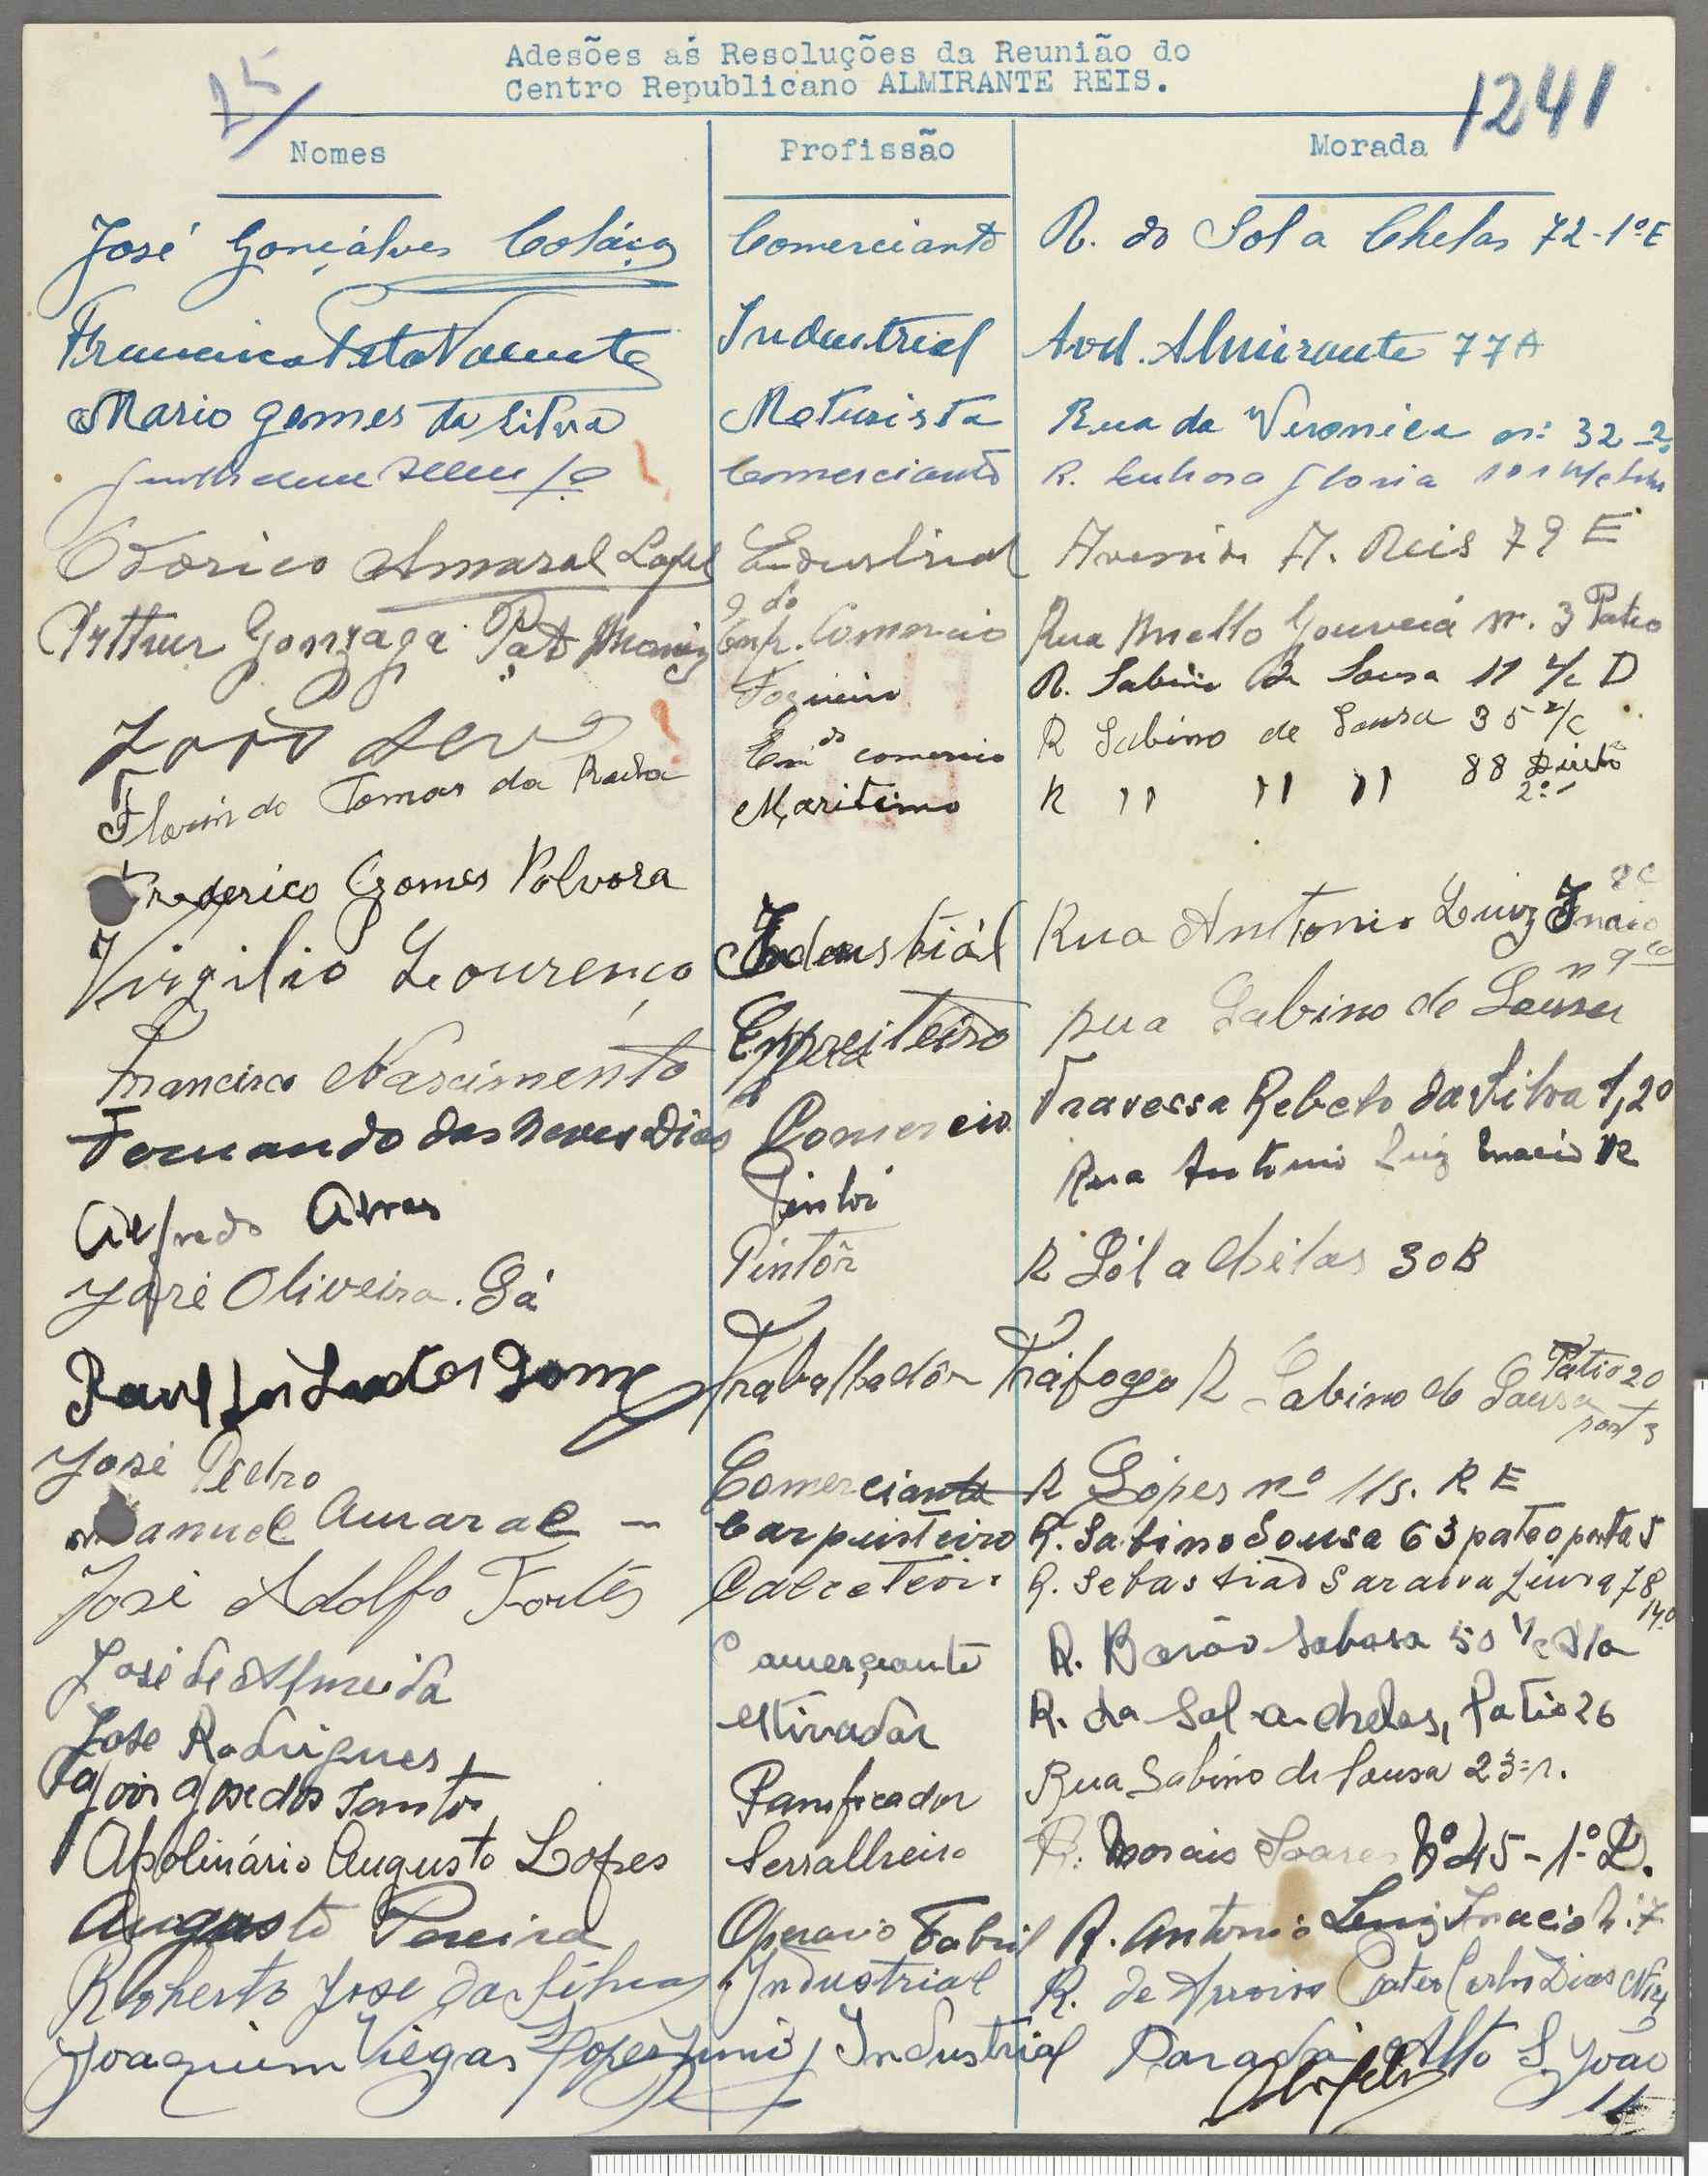 25
Adesões ás Resoluções da Reunião do
Centro Republicano ALMIRANTE REIS.
1241
Nomes Profissão Morada
José Gonçálves Coláço Comerciante R. do Sol a Chelas 72-1º E
Industrial Avd. Almirante 77A
Mario gomes da Silva Moturista Rua da Veronica nº 32-2º
Comerciante R. Senhora Gloria 101
Odorico Amaral Lopes Edustrial Avenida A. Reis 79 E
Arthur Gonzaga Pato Moniz Emp. do Comercio Rua Mello Gouveiá nº. 3 Patio
João Fogueiro R. Sabino de Sousa 11 r/c D
Florindo Tomas da Rocha Emdo comercio R Sabino de Sousa 35 r/c
Frederico Gomes Polvora Maritimo R " " " 88 Direito 2º
Virgilio Lourenço Industriál Rua Antonio Luiz Inacio
Francisco Nascimento Empreiteiro Rua Sabino de Sousa
Fernando das Neves Dias Comercio Travessa Rebelo da Silva 1, 2º
Alfredo Alves Pintor Rua Antonio Luiz Inacio
José Oliveira. Sá Pintôr R Sól a Chélas 30B
Raul dos Santos Gomes Trabalhadôr Tráfogo R Sabino de Sousa Patio 20 port 3
José Pedro Comerciante R Lópes nº 113. R E
Manuel Amaral — Carpinteiro R. Sabino Sousa 63 pateo porta 5
José Adolfo Fortes Calceteiro R. Sebastião Saraiva Lima 78
José de Almeida Comerçiante R. Barão Sabrosa 50
José Rodrigues estivador R. do Sol a chelas, Patio 26
João José dos Santos Panificador Rua Sabino de Sousa 23
Apolinário Augusto Lopes Serralheiro R. Morais Soares Nº 45-1º D.
Augusto Pereira Operario Fabril R. Antonio Luiz Inacio
Roberto José da Silva Industrial R. de Arroios Pateo Carlos Dias
Joaquim Viegas Lopes Junior Industrial Parada Alto S. João